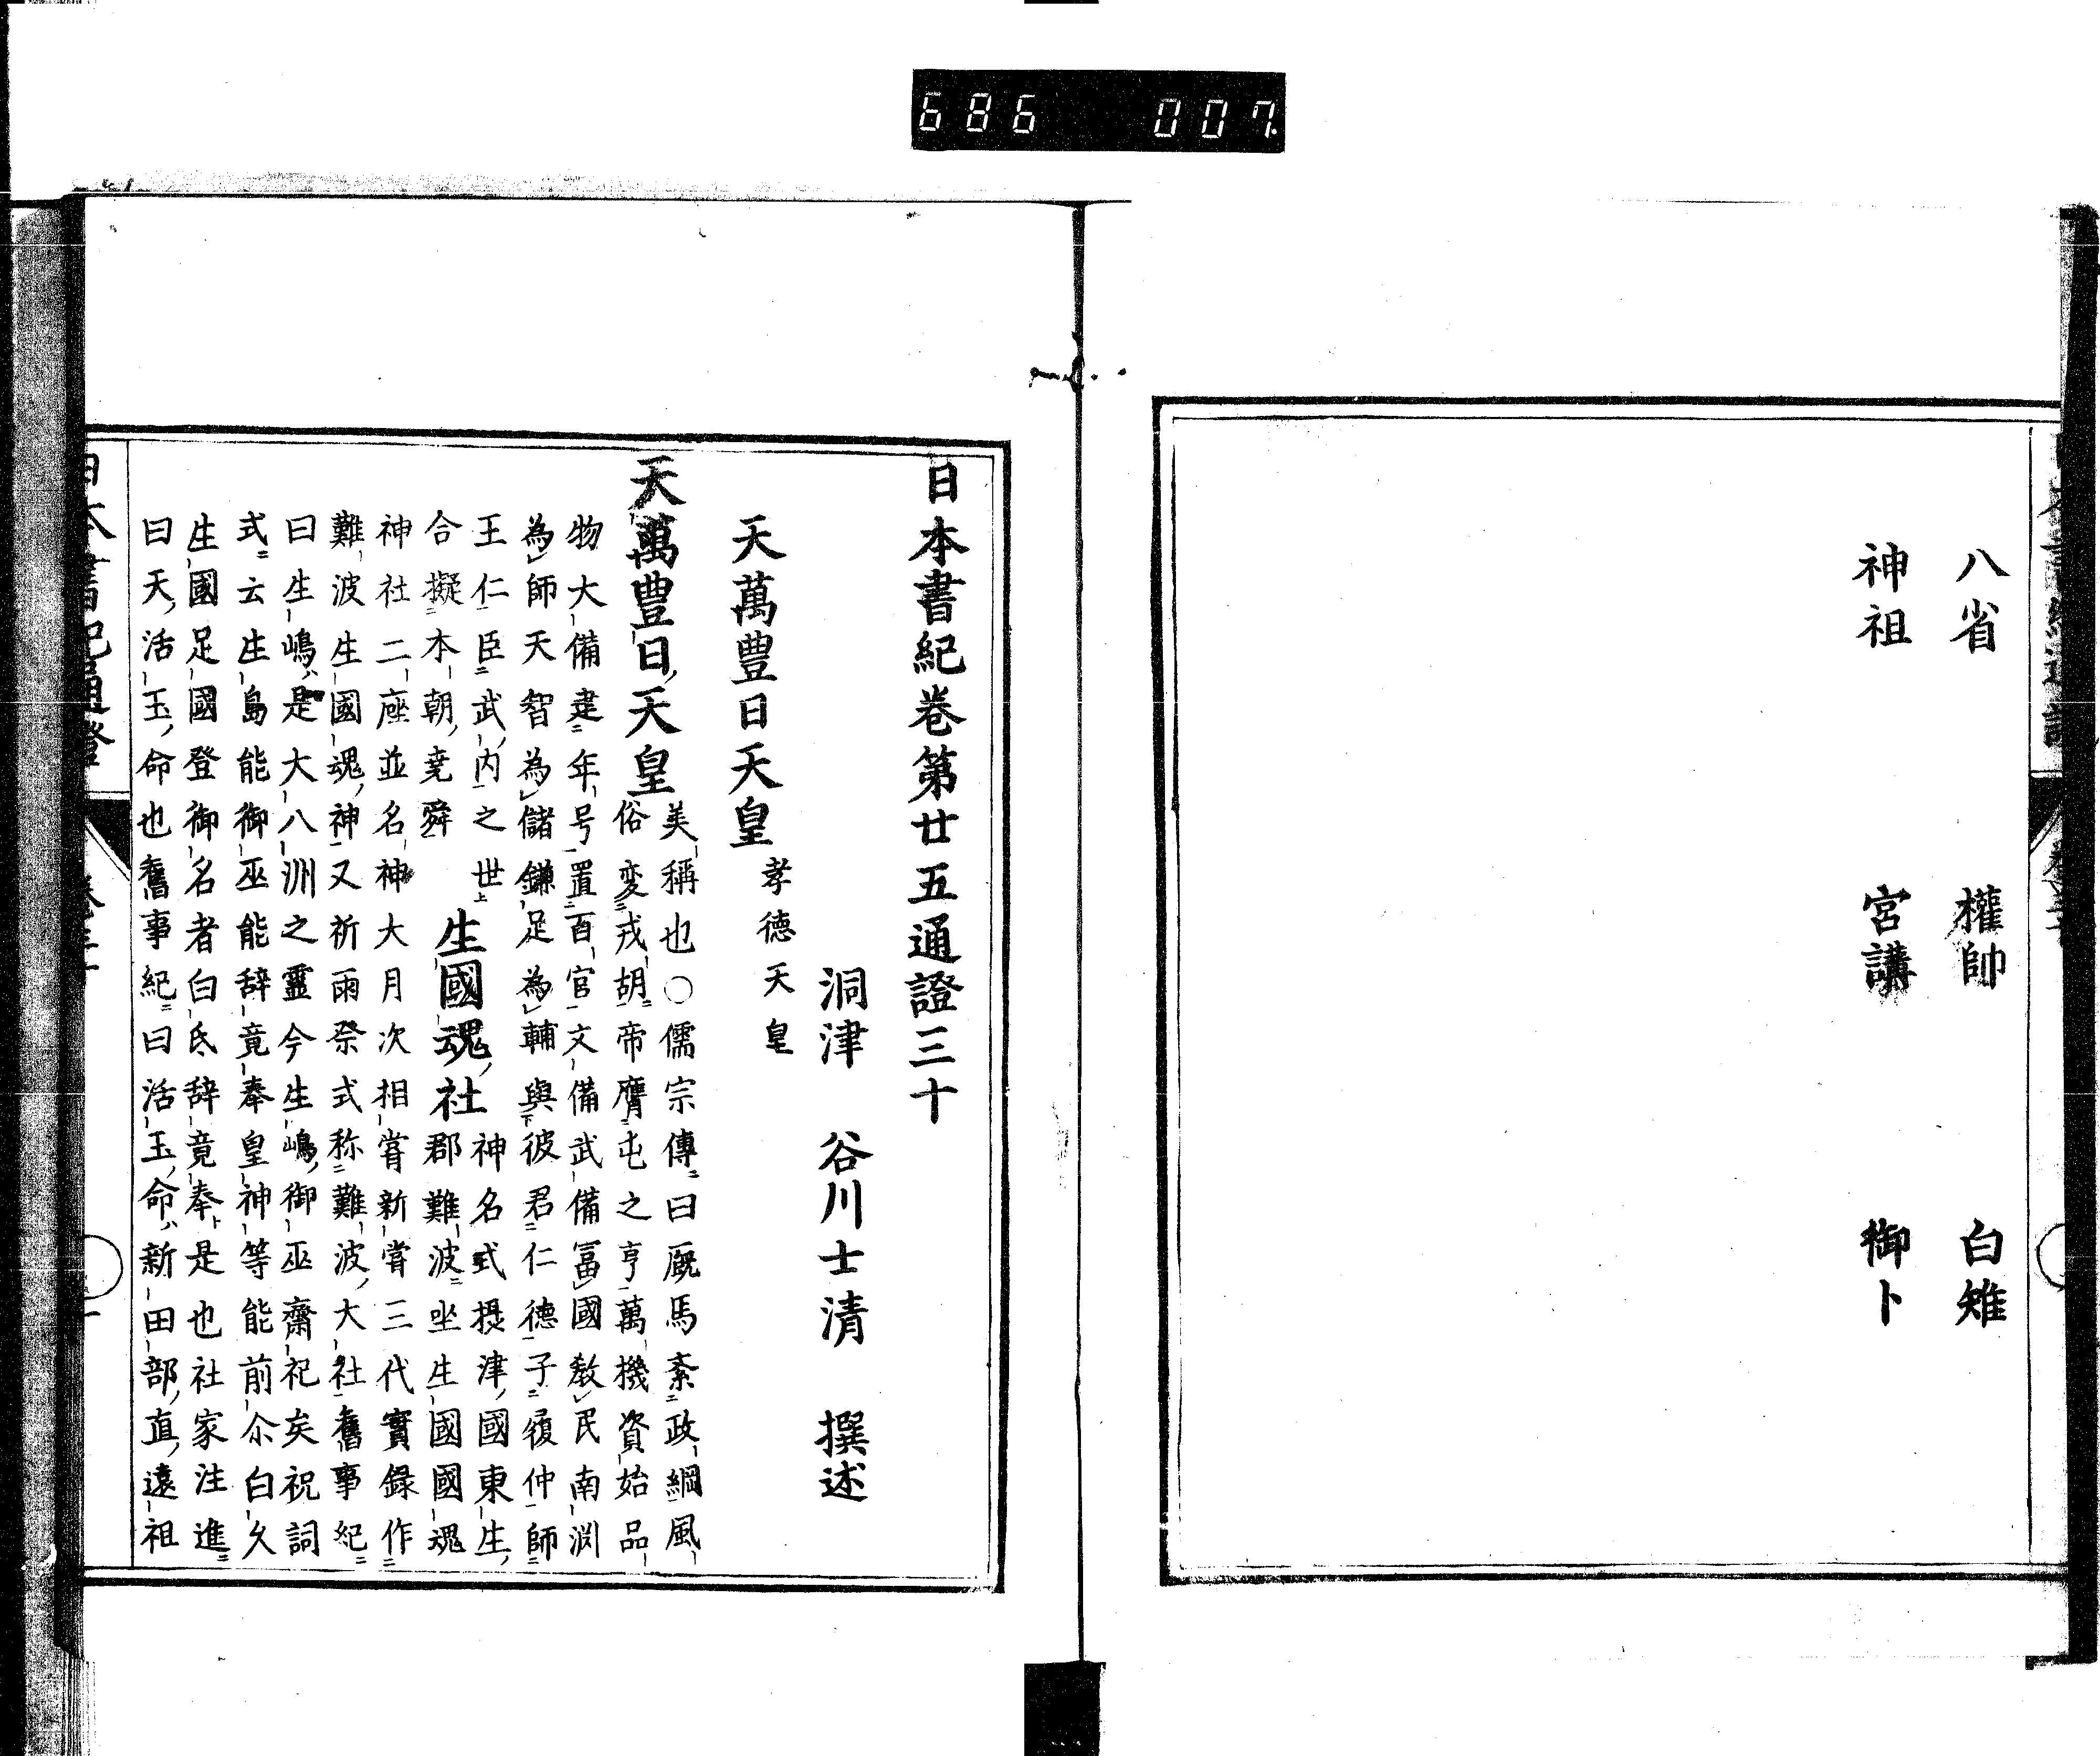 686 007
八省 權帥 白雉
神祖 宮講 御卜
日本書紀卷第廿五通證三十
洞津 谷川士清 撰述
天萬豊日天皇 孝德天皇
天萬豊日天皇 美稱也○儒宗傳曰厩馬紊政綱風
俗変戎胡帝膺屯之亨萬機資始品
物大備建年号置百官文備武備冨國教民南渕
為師天智為儲鎌足為輔與彼君仁德子履仲師
王仁臣武内之世
合擬本朝堯舜
生國魂社 神名式摂津國東生
郡難波坐生國國魂
神社二座並名神大月次相甞新甞三代實錄作
難波生國魂神又祈雨祭式称難波大社舊事紀
曰生嶋是大八洲之靈今生嶋御巫齋祀矣祝詞
式云生島能御巫能辞竟奉皇神等能前尒白久
生國足國登御名者白氐辞竟奉是也社家注進
曰天活玉命也舊事紀曰活玉命新田部直遠祖